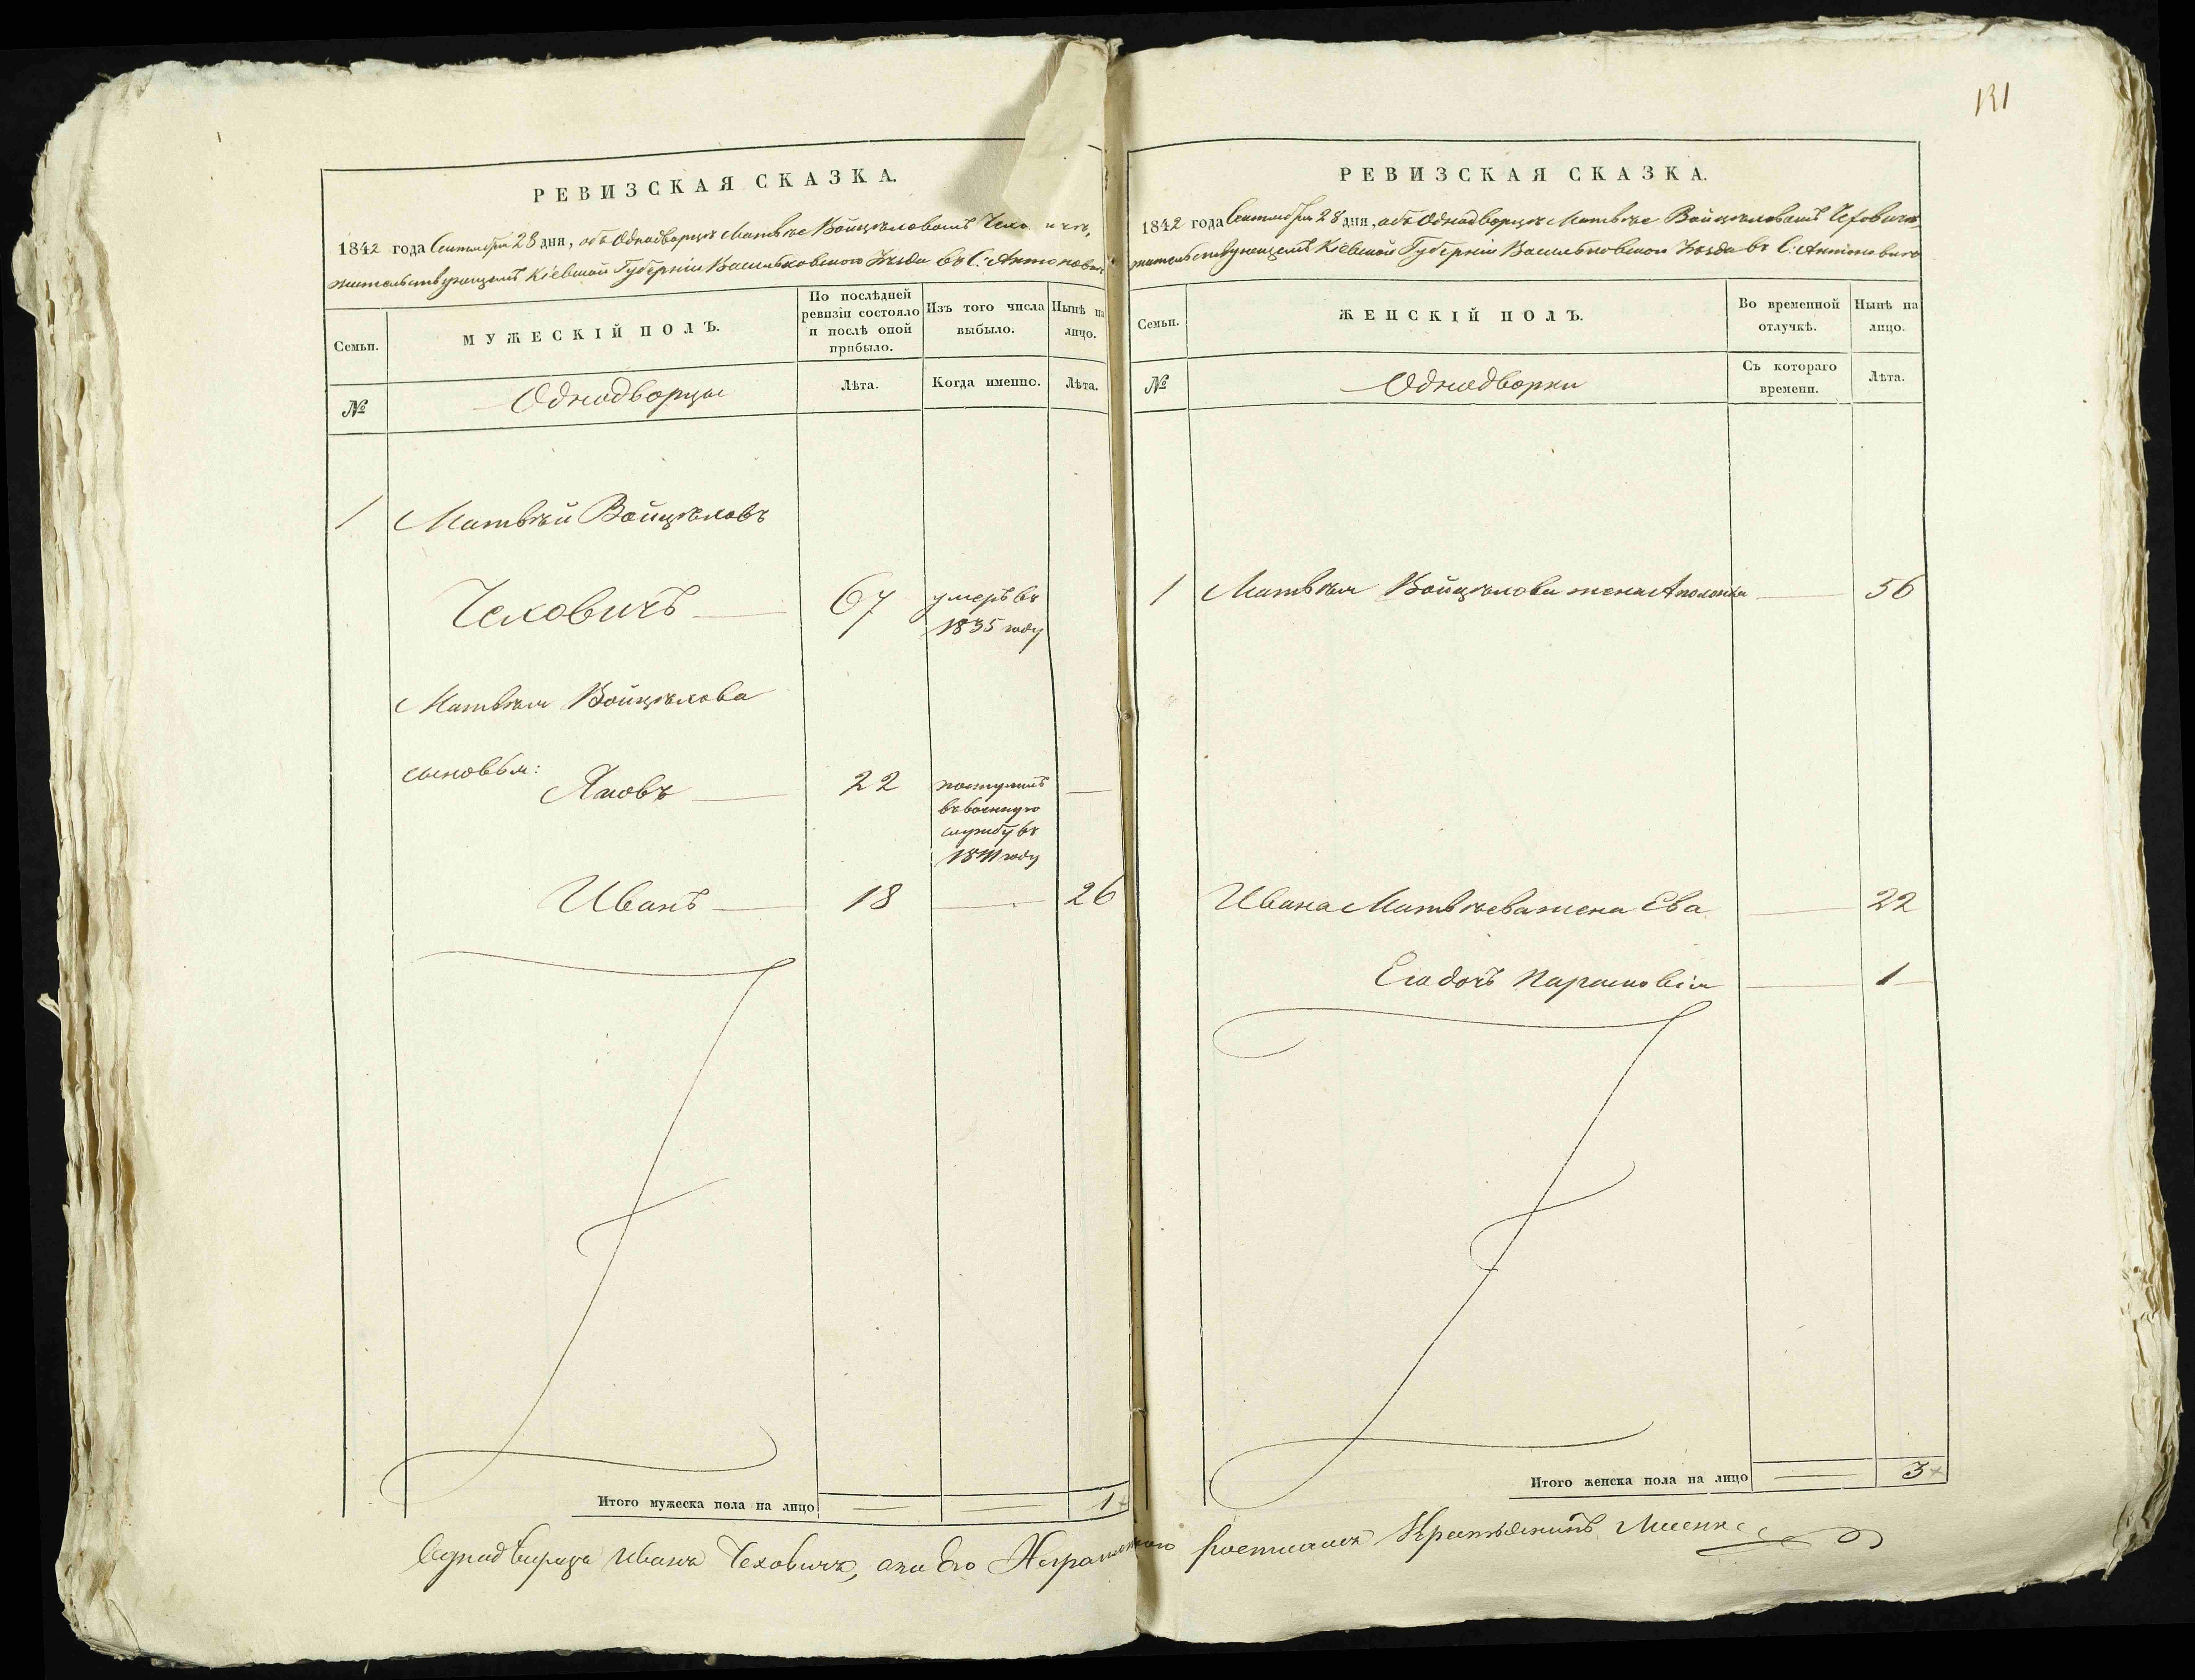 131
РЕВИЗСКАЯ СКАЗКА.
1842 года Сентября 28 дня, объ Однодворце Матвѣе Войцѣховомъ Чехо ичѣ,
жительствующемъ Кіевской Губерніи Васильковскаго Уѣзда въ С: Антоновкѣ
Семьи.
МУЖЕСКІЙ ПОЛЪ.
По послѣдней ревизіи состояло и послѣ оной прибыло.
Изъ того числа выбыло.
Нынѣ на лицо.
№
Однодворцы
Лѣта.
Когда именно.
Лѣта.
1 Матвѣй Войцѣховъ
Чеховичъ 67 умеръ въ
1835 году
Матвѣя Войцѣхова
сыновья:
Яковъ 22 поступилъ
въ военную
службу въ
1841 году
Иванъ 18 26
Итого мужеска пола на лицо 1
РЕВИЗСКАЯ СКАЗКА.
1842 года Сентября 28 дня, объ Однодворце Матвѣе Войцѣховомъ Чеховичѣ,
жительствующемъ Кіевской Губерніи Васильковскаго Уѣзда въ С:
Семьи.
ЖЕНСКІЙ ПОЛЪ.
Во временной отлучкѣ.
Нынѣ на лицо.
№
Однодворки
Съ котораго времени.
Лѣта.
1 Матвѣя Войцѣхова жена Аполонія 56
Ивана Матвѣева жена Ева 22
Его дочъ Парасковія 1
Итого женска пола на лицо 3
Иванъ Чеховичъ, а за его Неграмотного росписался